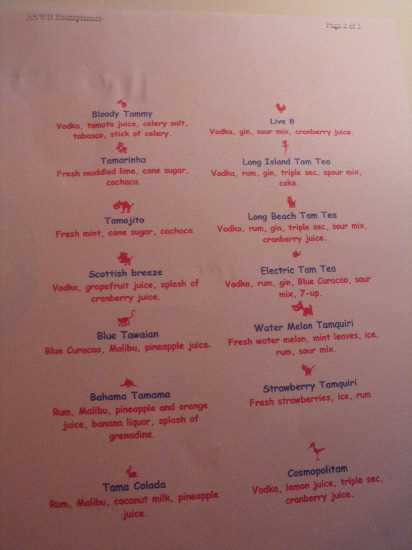 Page 2 of 3
Bloody Tammy
Vodka, tomato juice, celery salt,
tabasco, stick of celery.
Tamarinha
Fresh muddled lime, cane sugar,
cachaca.
Tamojito
Fresh mint, cane sugar, cachaca.
Scottish breeze
Vodka, grapefruit juice, splash of
cranberry juice.
Blue Tawaian
Blue Curacao, Malibu, pineapple juice.
Bahama Tamama
Rum, Malibu, pineapple and orange
juice, banana liquor, splash of
grenadine.
Tama Colada
Rum, Malibu, coconut milk, pineapple
juice.
Live B
Vodka, gin, sour mix, cranberry juice.
Long Island Tam Tea
Vodka, rum, gin, triple sec, spour mix,
coke.
Long Beach Tam Tea
Vodka, rum, gin, triple sec, sour mix,
cranberry juice.
Electric Tam Tea
Vodka, rum, gin, Blue Curacao, sour
mix, 7-up.
Water Melon Tamquiri
Fresh water melon, mint leaves, ice,
rum, sour mix.
Strawberry Tamquiri
Fresh strawberries, ice, rum
Cosmopolitam
Vodka, lemon juice, triple sec,
cranberry juice.